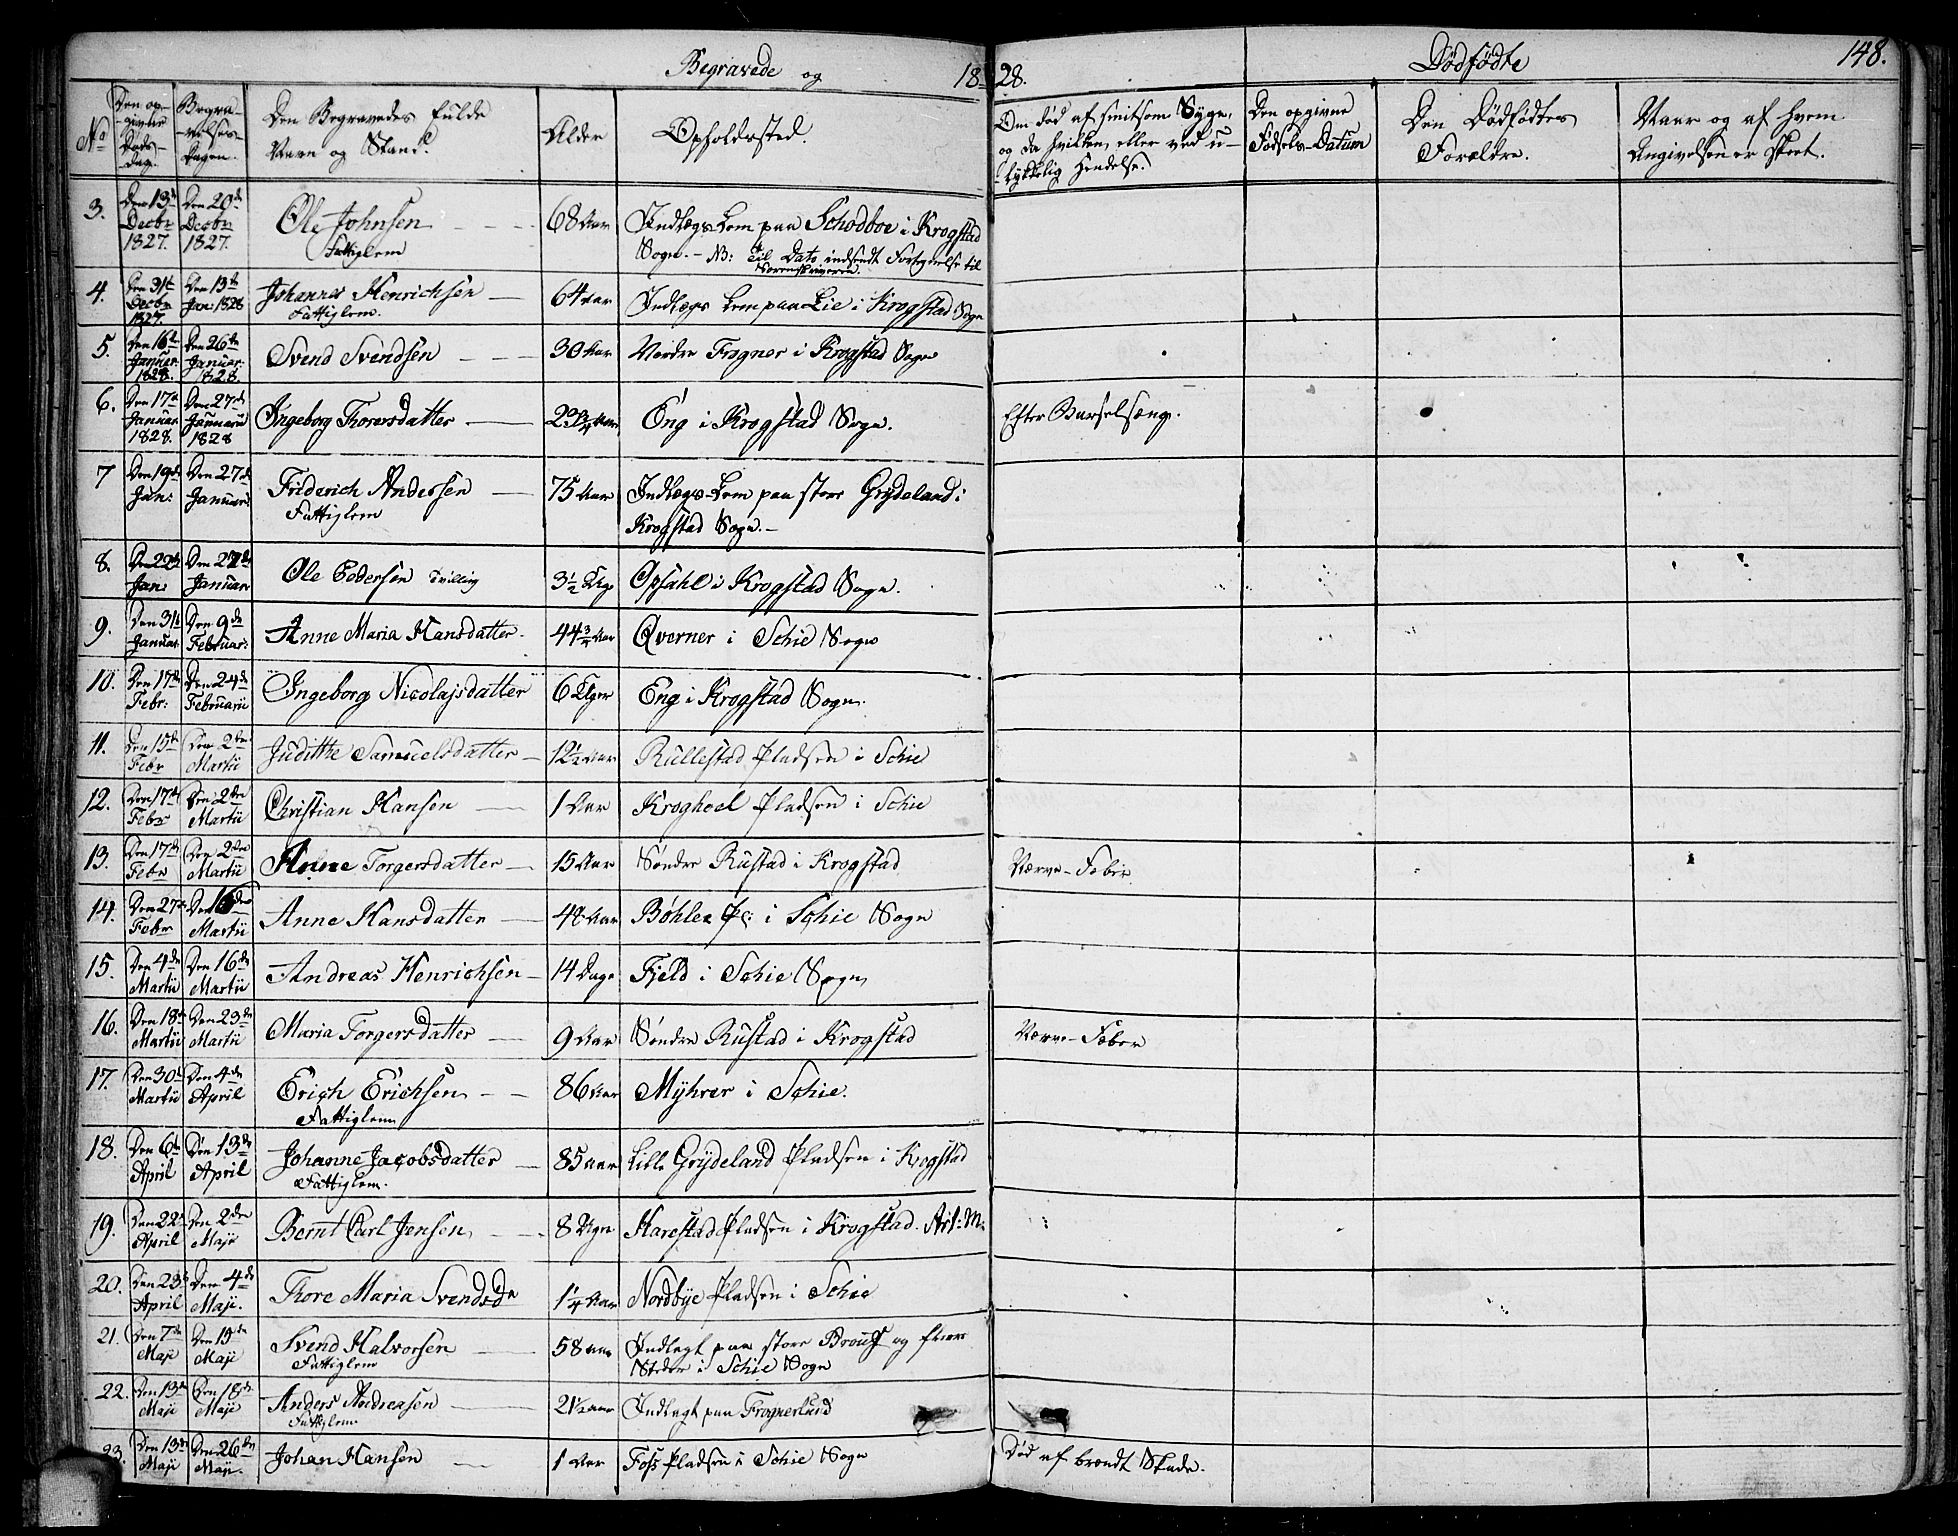 Begravede og 18 28. Dødfødte 148.
No
Den op-
givne
Døds-
dag.
Begra-
velses-
Dagen.
Den Begravedes fulde
Navn og Stand.
Alder
Opholdssted.
Om død af smitsom Syge,
og da hvilken, eller ved u-
lykkelig Hendelse.
Den opgivne
Fødsels-Datum
Den Dødfødtes
Forældre.
Naar og af hvem
Angivelsen er skeet.
3. Den 13de Decbr 1827. Den 20de Decbr 1827. Ole Johnsen 68 Aar Indlægs Lem paa Schodboe i Krogstad
Fattiglem Sogn. - NB: Til Dato indsendt Fortegnelse til
Sorenskriveren
4. Den 31te Decbr 1827. Den 13de Jan: 1828 Johannes Henrichsen 64 Aar Indlægs Lem paa Lie i Krogstad Sogn
Fattiglem.
5. Den 16de Januar: 1828. Den 26de Januar: 1828. Svend Svendsen 30 Aar Nordre Frogner i Krogstad Sogn
6. Den 17de Januar 1828. Den 27de Januarii 1828 Ingeborg Thorersdatter Aar Eng i Krogstad Sogn. Efter Barselsæng.
7 Den 19de Jan: Den 27de Januar: Friderich Andersen 75 Aar Indlægs-Lem paa store Grydeland i
Fattiglem Krogstad Sogn.-
8. Den 22de Jan: Den 27de Januar Ole Pedersen Tvilling 3 1/2 Ug Opsahl i Krogstad Sogn.
9. Den 31te Januar: Den 9de Februar: Anne Maria Hansdatter. 44 3/4 Aar Qverner i Schie Sogn
10. Den 17de Febr: Den 24de Februarii Ingeborg Nicolajsdatter 6 Uger Eng i Krogstad Sogn.
11. Den 15de Febr Den 2den Martii Judithe Samuelsdatter 12 1/2 Aar Rullestad Pladsen i Schie
12. Den 17de Febr Den 2den Martii Christian Hansen 1 Aar Kroghoel Pladsen i Schie
13. Den 17de Febr Den 2den Martii Anne Torgersdatter 15 Aar Søndre Rustad i Krogstad Nerve-Feber
14. Den 27de Febr Den 16de Martii Anne Hansdatter 48 Aar Bøhler Pl: i Schie Sogn
15. Den 4de Martii Den 16de Martii Andreas Henrichsen 14 Dage Fjeld i Schie Sogn
16. Den 18de Martii Den 23de Martii Maria Torgersdatter 9 Aar Søndre Rustad i Krogstad Nerve-Feber
17. Den 30te Martii Den 4de April Erich Erichsen 86 Aar Myhrer i Schie.
Fattiglem
18. Den 6te April Den 13de April Johanne Jacobsdatter 85 Aar Lille Grydeland Pladsen i Krogstad
Fattiglem.
19. Den 22de April Den 2den Maji Bernt Carl Jensen 8 Ugr Harestad Pladsen i Krogstad. Art: M:
20. Den 23de April Den 4de Maji. Thore Maria Svendsdr 1 1/4 Aar Nordbye Pladsen i Schie
21. Den 7de Maji Den 13de Maji Svend Halvorsen 58 Aar Indlagt paa store Brouss og flere
Fattiglem Steder i Schie Sogn
22. Den 13de Maji Den 18de Maji Anders Andreasen 21 1/2 Aar Indlagt paa Frognerlund
Fattiglem
23. Den 13de Maji Den 26de Maji. Johan Hansen 1 Aar Foss Pladsen i Schie Sogn Død af brændt Skade.